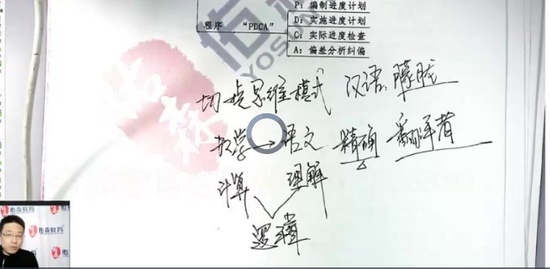 P：编制进度计划
程序 “PDCA” D：实施进度计划
C：实际进度检查
A：偏差分析纠偏
切换思维模式 汉语 朦胧
数学 → 语文 精确 翻译者
计算 理解
逻辑
佑森教育